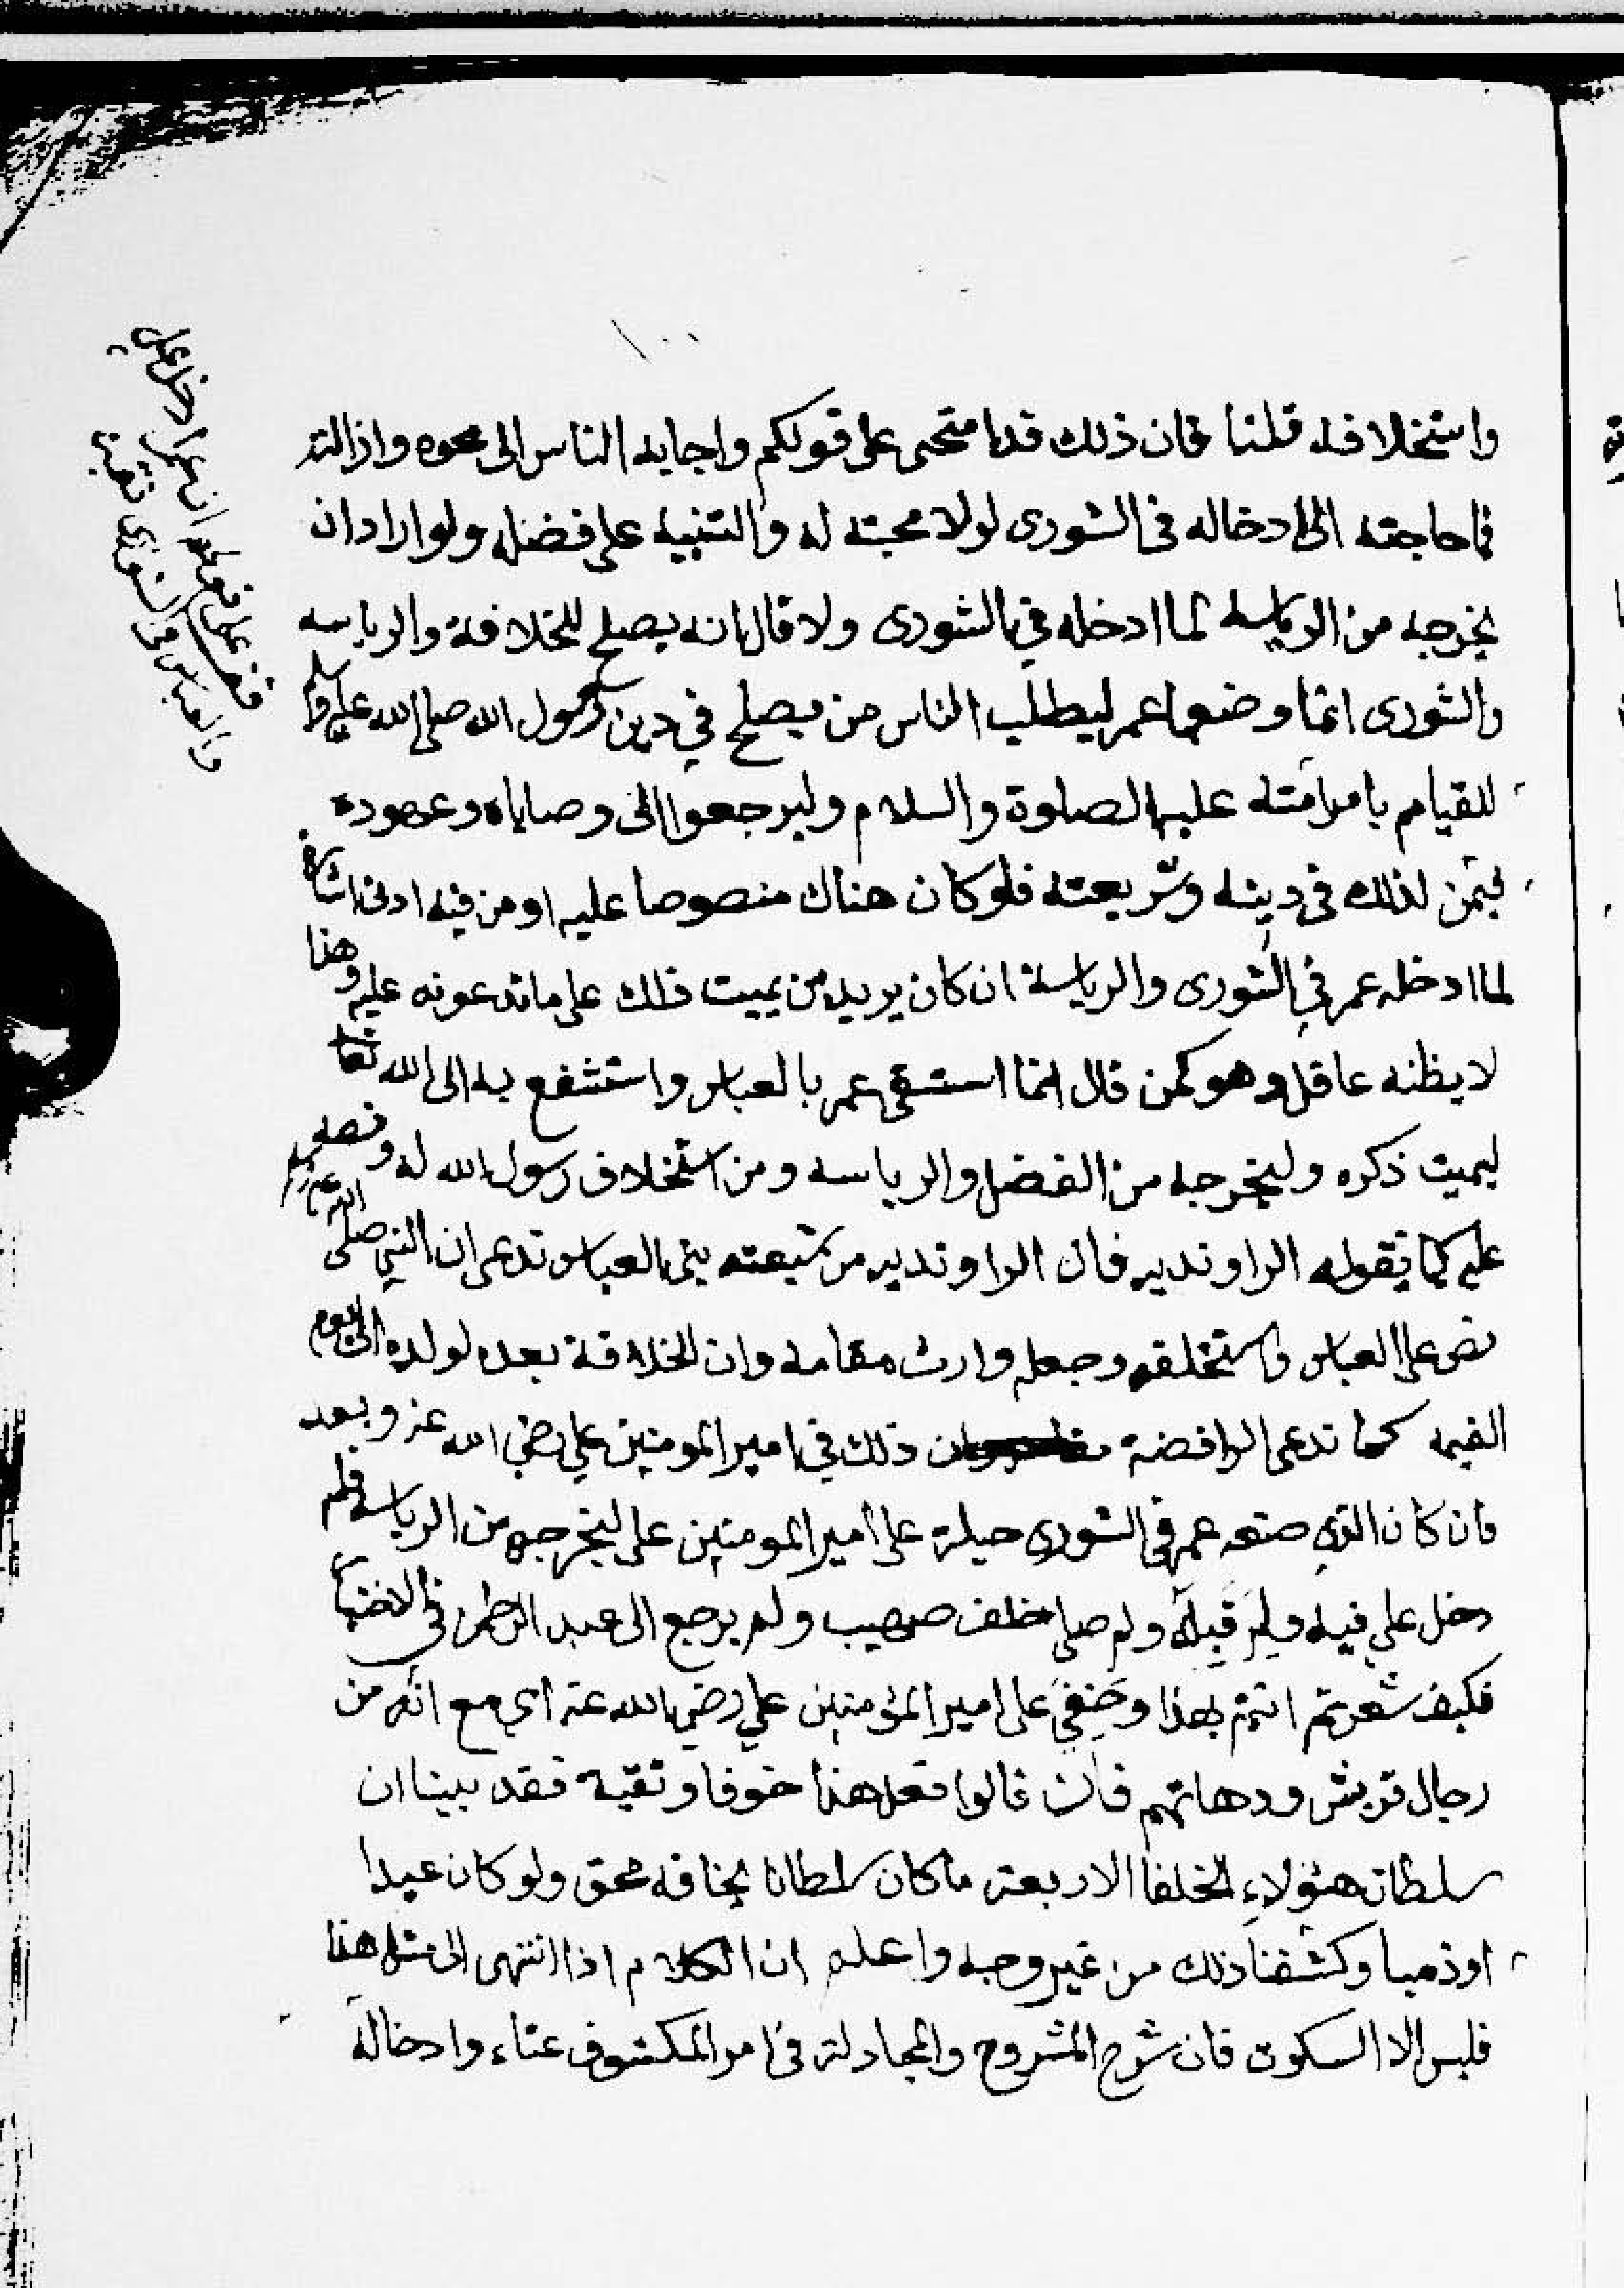 ١٠٠
واستخلافه قلنا فان ذلك قد امتحى على قولكم واجابه الناس الى محوه وازالته
فما حاجته الى ادخاله فى الشورى لولا محبته له والتنبيه على فضله ولو اراد ان
يخرجه من الرياسه لما ادخله في الشورى ولا قال انه يصلح للخلافة والرياسه
والشورى انما وضعها عمر ليطلب الناس من يصلح في دين رسول الله صلى الله عليه وسلم
للقيام بامر امته عليه الصلوة والسلام وليرجعوا الى وصاياه وعهوده
فيمن لذلك فى دينه وشريعته فلو كان هناك منصوصا عليه او من فيه ادنى اشارة
لما ادخله عمر في الشورى والرياسة ان كان يريد من يميت ذلك على ما تدعونه عليه وهذا
لا يظنه عاقل وهو كمن قال انما استسقى عمر بالعباس واستشفع به الى الله تعا
ليميت ذكره وليخرجه من الفضل والرياسه ومن استخلاف رسول الله له ونصه
عليه كما تقوله الراونديه فان الراونديه من شيعته بنى العباس تدعى ان النبي صلى الله عليه وسلم
نص على العباس واستخلفه وجعله وارث مقامه وان الخلافة بعده لولده الى يوم
القيمه كما تدعى الرافضة ذلك في امير المومنين علي رضي الله عنه وبعد
فان كان الذي صنعه عمر فى الشورى حيلة على امير المومنين على ليخرجه من الرياسه فلم
دخل علي فيه ولم قبله ولم صلى خلف صهيب ولم يرجع الى عبد الرحمن في الاختيار
فكيف شعرتم انتم بهذا وخفي على امير المؤمنين علي رضي الله عنه اي مع انه من
رجال قريش ودهاتهم فان قالوا فعل هذا خوفا وتقية فقد بينا ان
سلطان هؤلاء الخلفا الاربعة ما كان سلطانا يخافه محق ولو كان عبدا
او ذميا وكشفنا ذلك من غير وجه واعلم ان الكلام اذا انتهى الى مثل هذا
فليس الا السكوت فان شرح المشروح والمجادلة فى امر المكشوف عناء وادخاله
ان عمر ادخل علي
والعباس في الشورى تقية